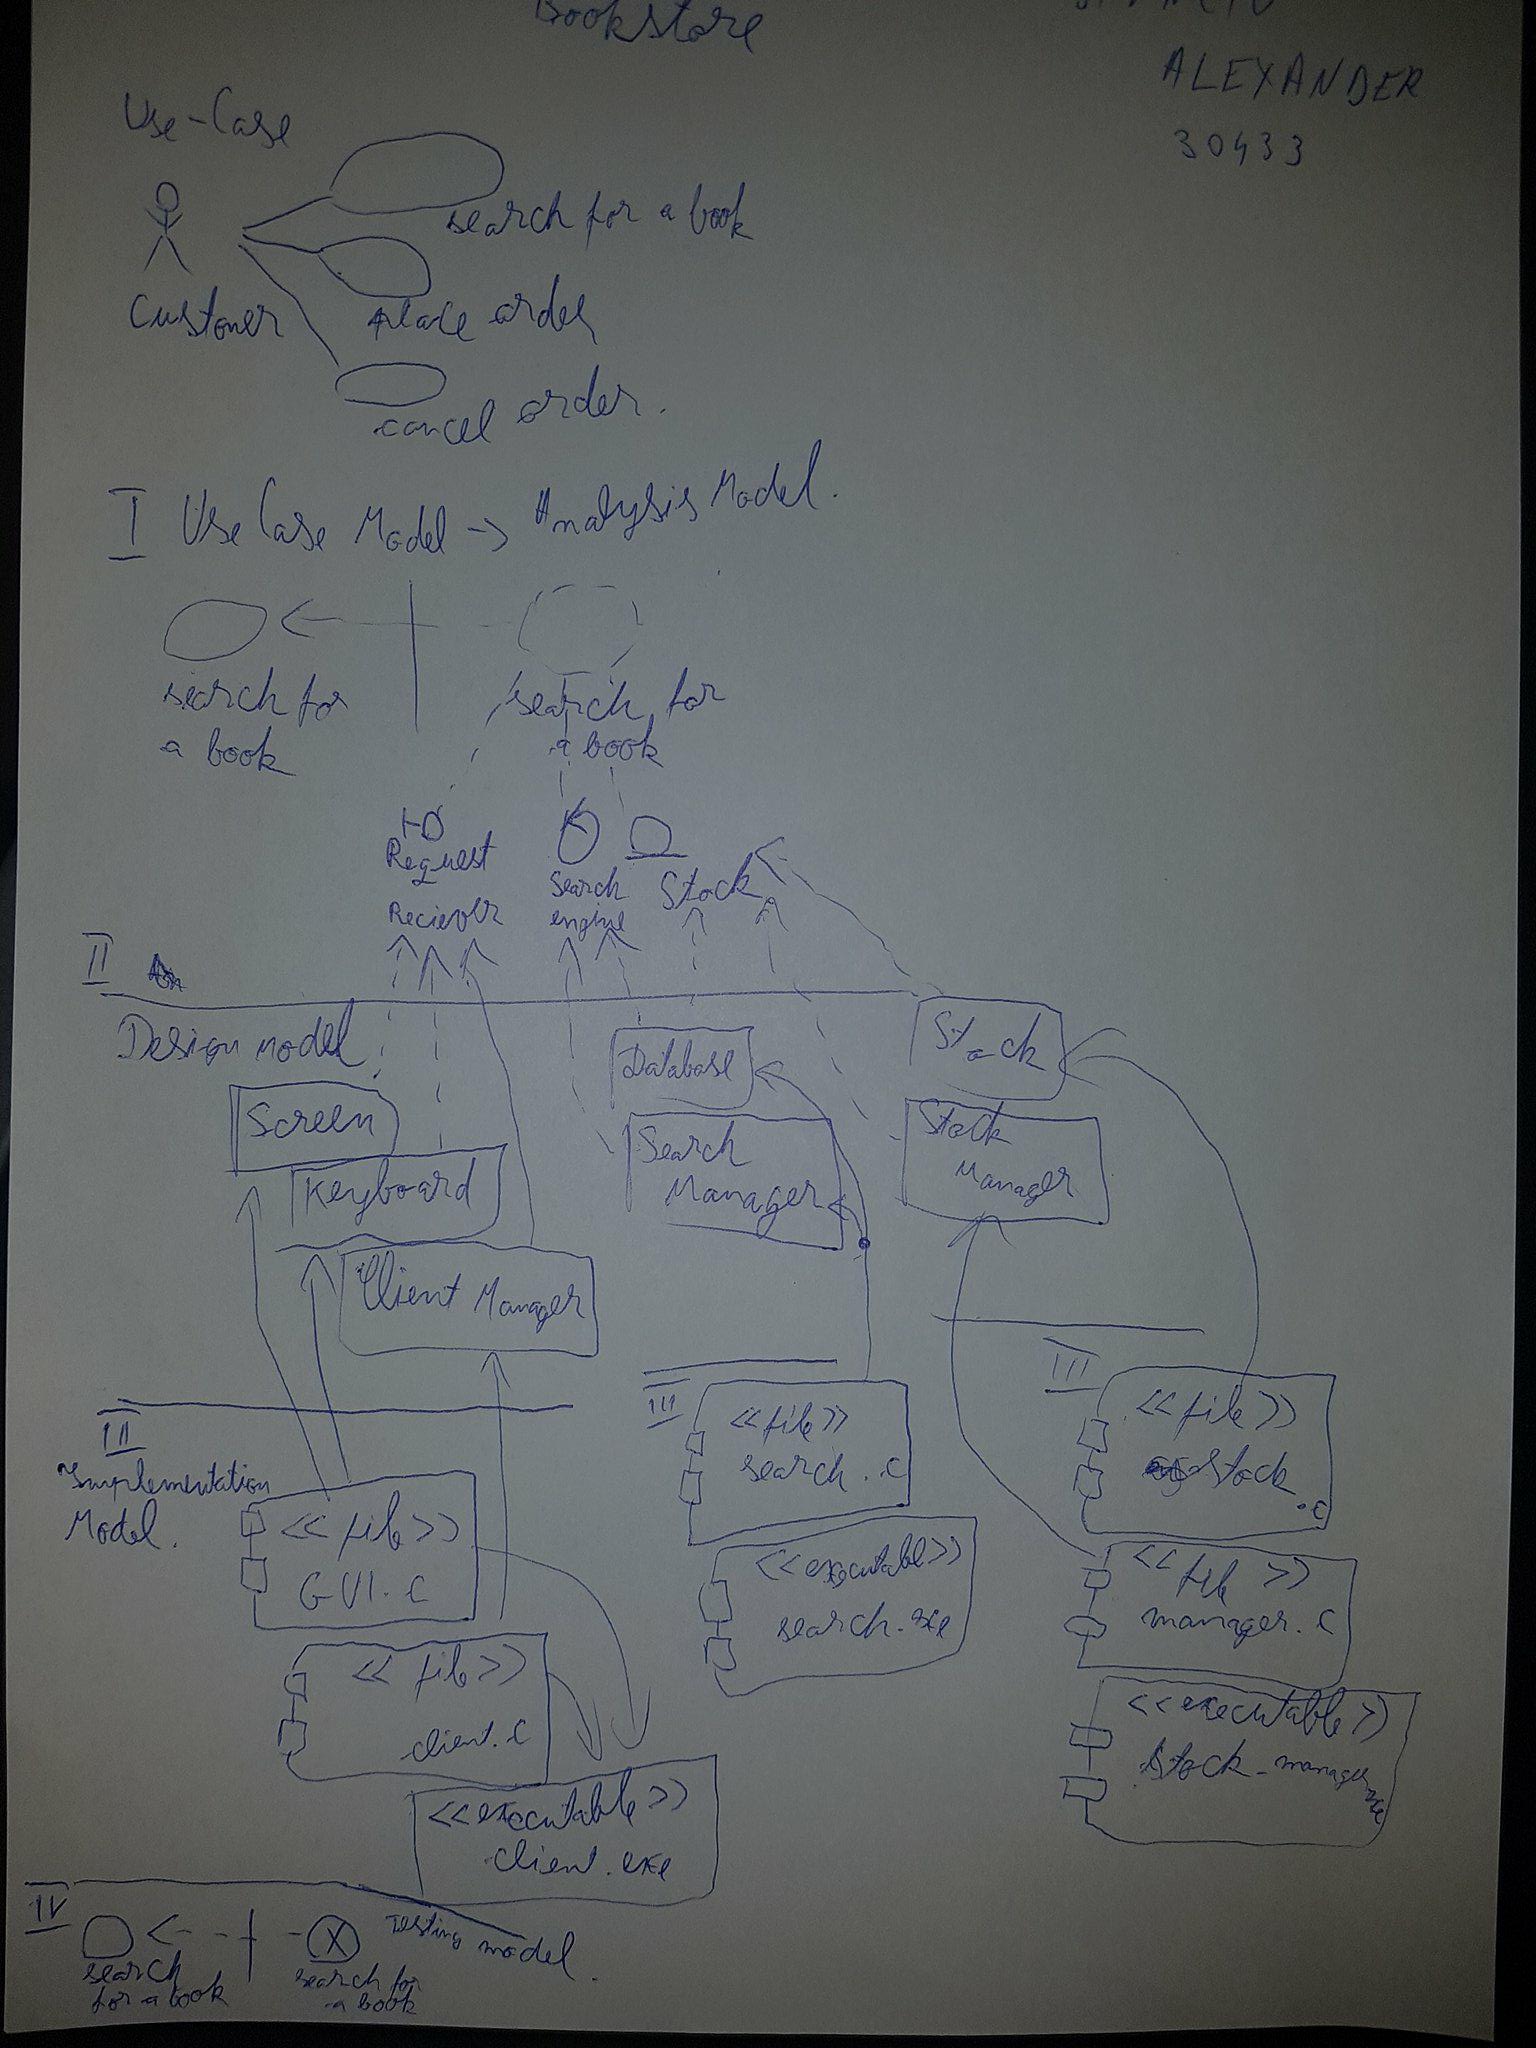 Bookstore
ALEXANDER
30433
Use-Case
search for a book
Customer
place order
cancel order.
I Use Case Model -> Analysis Model.
search for
a book
search for
a book
Request
Reciever
Search
engine
Stock
II
Design model
Screen
Keyboard
Client Manager
Database
Search
Manager
Stock
Stock
Manager
III
Implementation
Model.
<<file>>
GUI.c
<<file>>
client.c
<<executable>>
client.exe
III
<<file>>
search.c
<<executable>>
search.exe
III
<<file>>
stock
.c
<<file>>
manager.c
<<executable>>
stock_manager.exe
IV
Testing model.
search
for a book
search for
a book